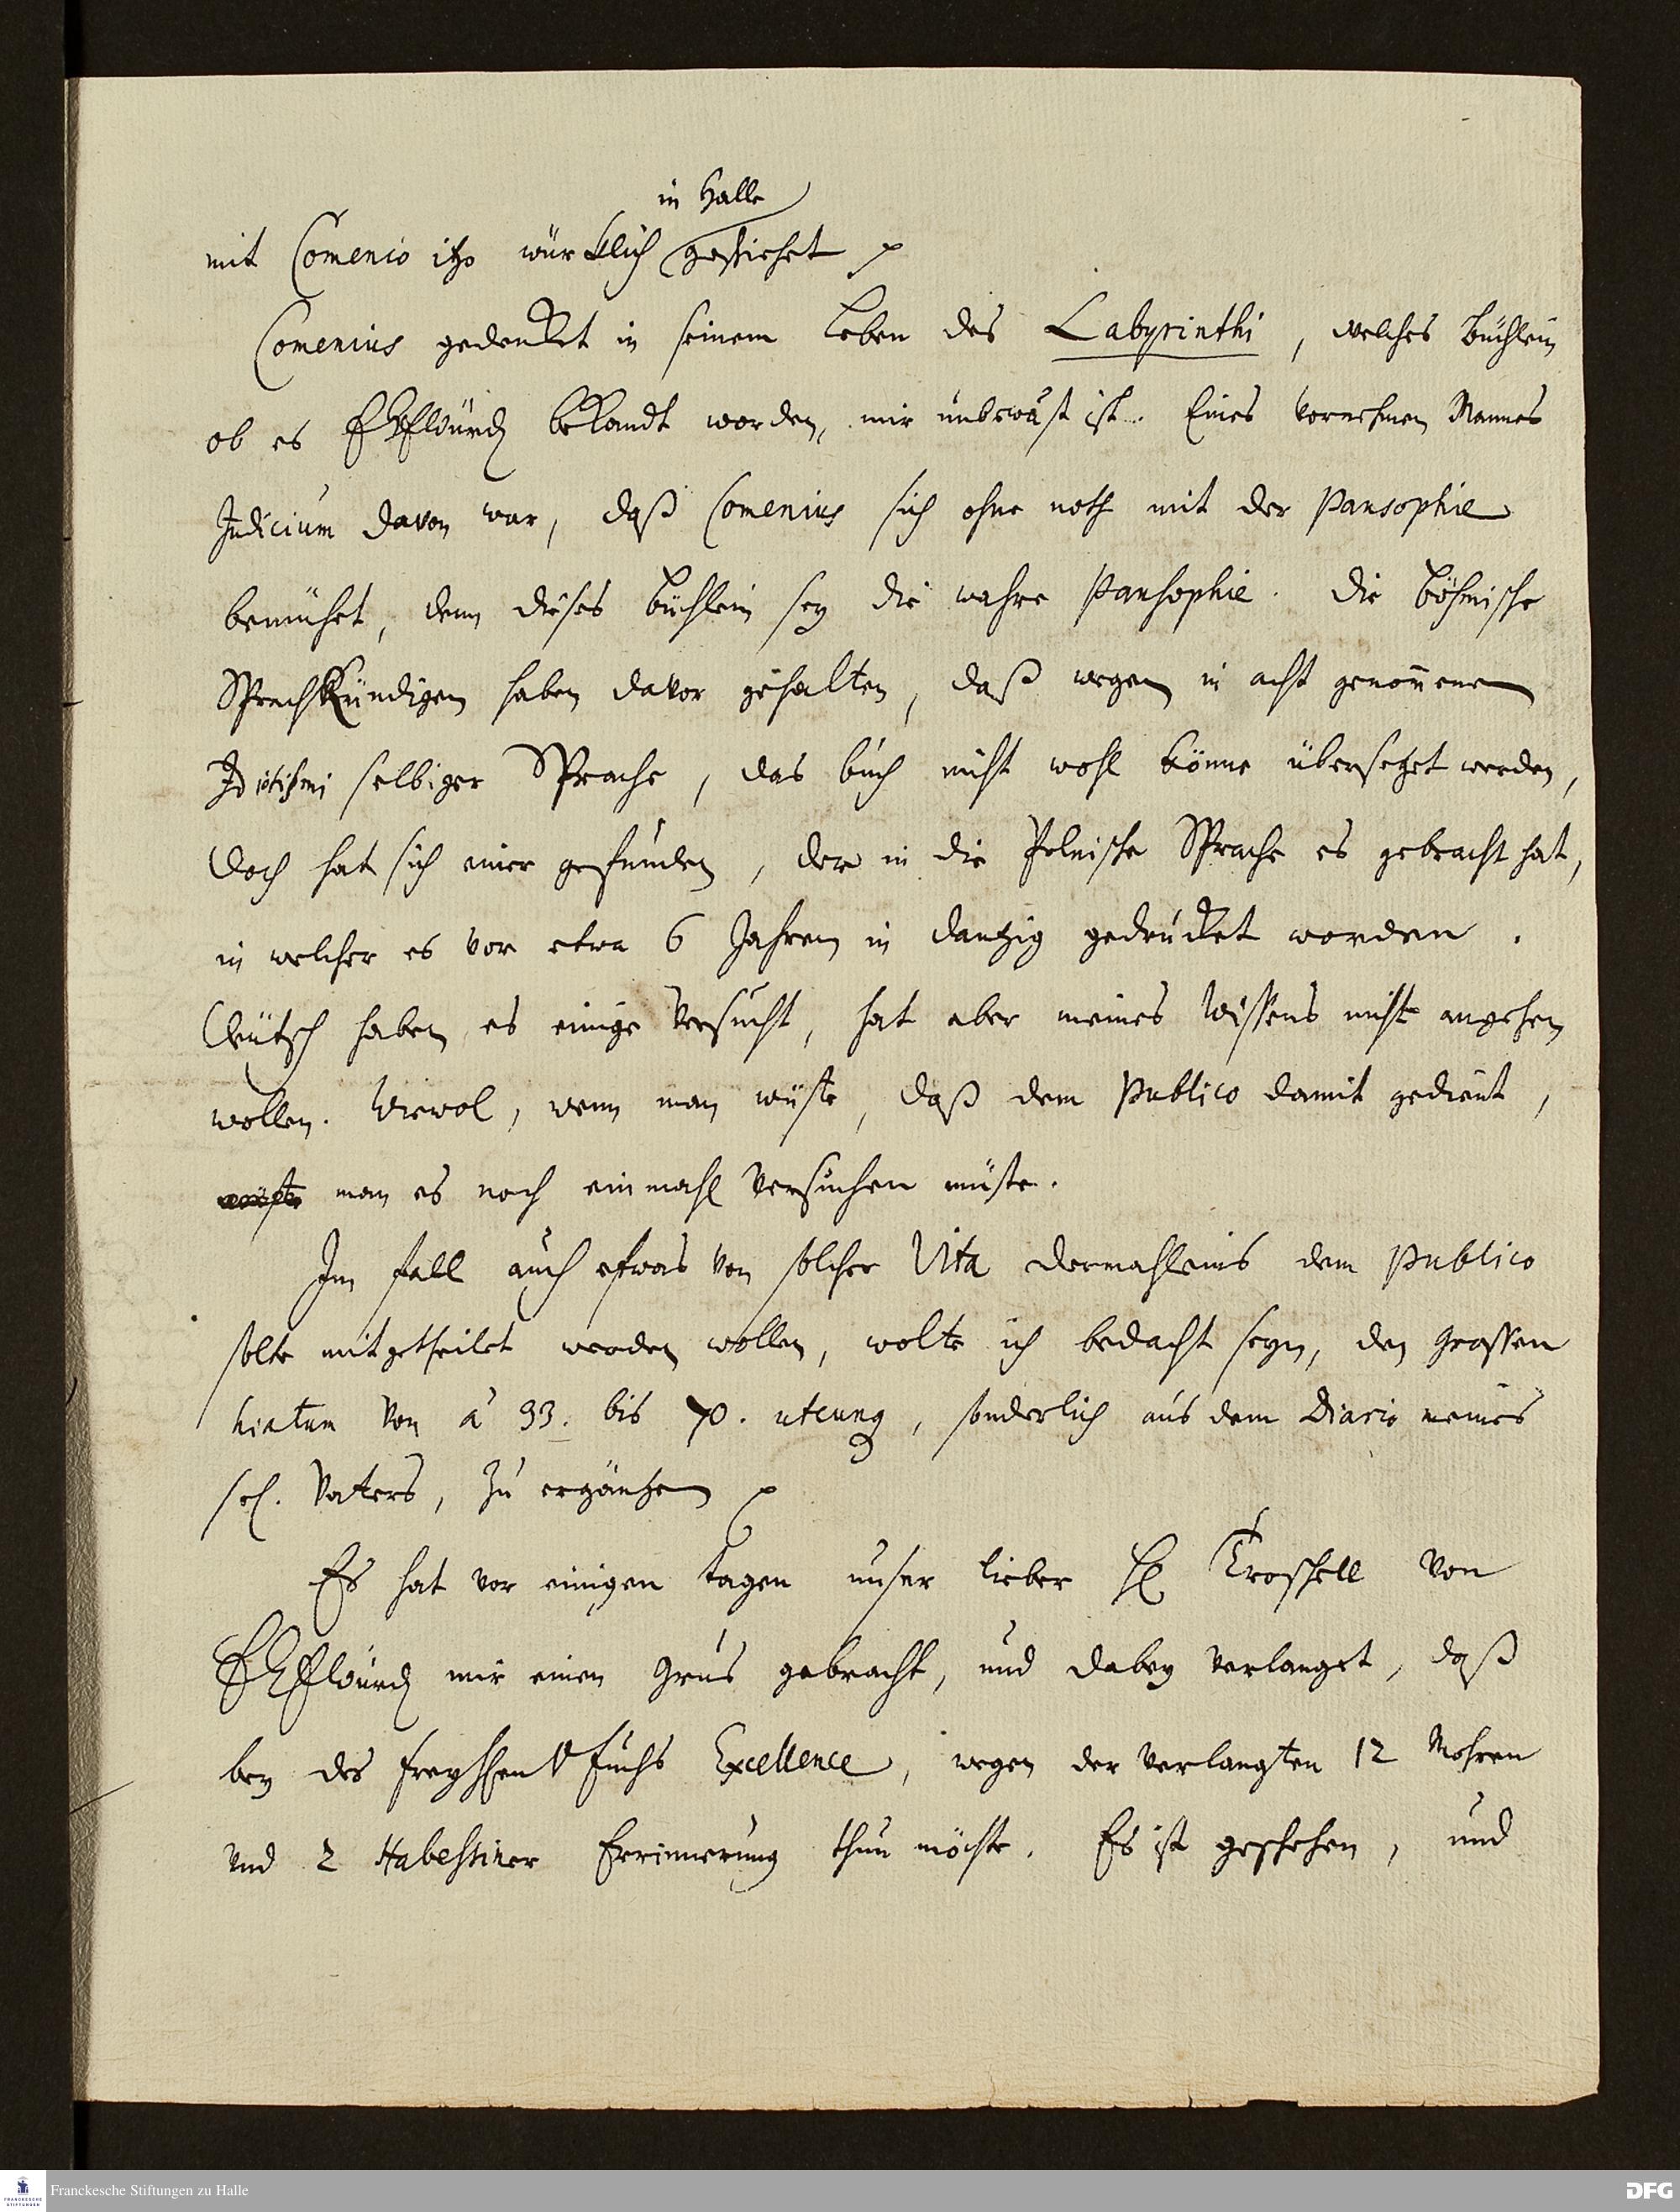 in Halle
mit Comenio itzo würcklich geschiehet
Comenius gedencket in seinem Leben des Labyrinthi, welches Büchlein
ob es bekandt worden, mir unbewust ist. Eines vornehmen Mannes
Judicium davon war, daß Comenius sich ohne noth mit der Pansophie
bemühet, denn dieses Büchlein sey die wahre Pansophie. Die Böhmische
Sprachkündigen haben davor gehalten, daß wegen in acht genom̄enen
Idiotismi selbiger Sprache, das buch nicht wohl könne übersetzet werden,
doch hat sich einer gefunden, der in die Polnische Sprache es gebracht hat,
in welcher es vor etwa 6 Jahren in Dantzig gedrucket worden.
Teutsch haben es einige versucht, hat aber meines Wissens nicht angehen
wollen. Wiewol, wenn man wüste, daß dem Publico damit gedient,
man es noch einmahl versuchen müste.
Im fall auch etwas von solcher Vita dermahleins dem Publico
solte mitgetheilet werden wollen, wolte ich bedacht seyn, den grossen
hiatum von a 33. bis 70. utcunq, sonderlich aus dem Diario meines
sel. Vaters, zu ergäntzen
Es hat vor einigen tagen unser lieber H Troschell von
mir einen Grus gebracht, und dabey verlanget, daß
bey des Freyhhen V Fuchs Excellence, wegen der verlangten 12 Mohren
und 2 Habessiner Errinnerung thun möchte. Es ist geschehen, und
Franckesche Stiftungen zu Halle
FRANCKESCHE STIFTUNGEN
DFG